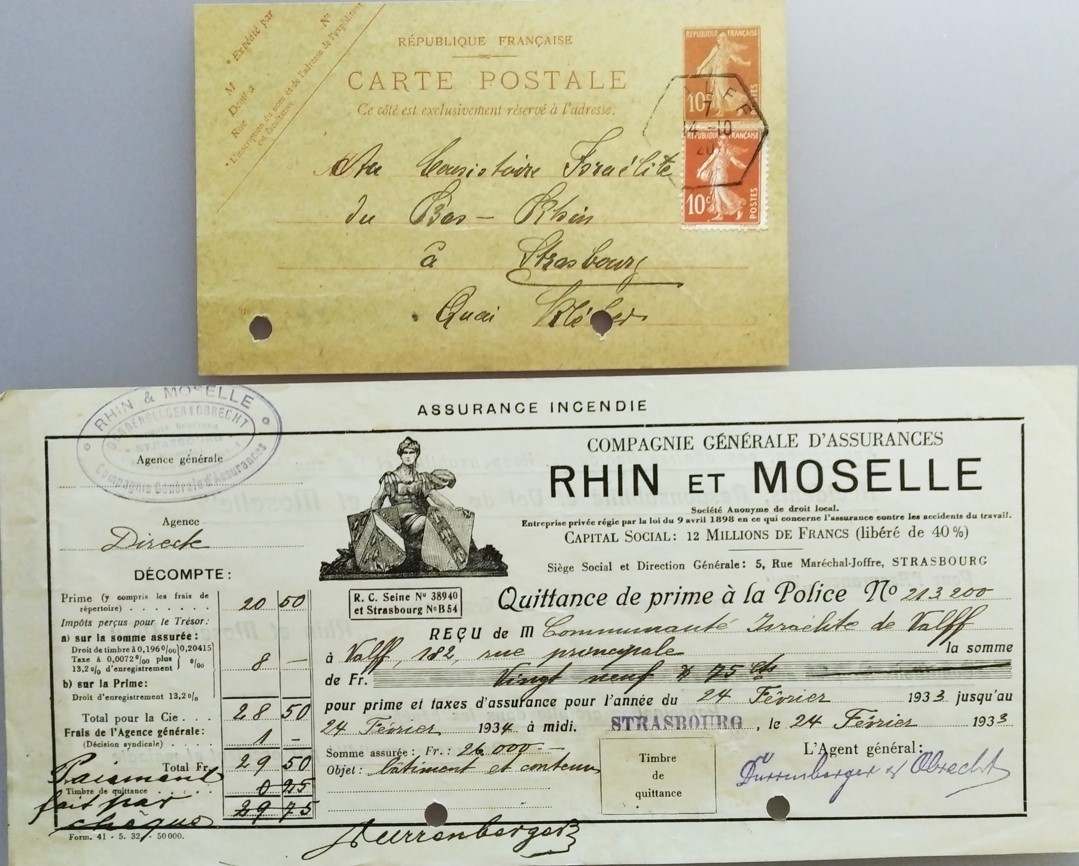 * Expédié par
N°
M
Rue
RÉPUBLIQUE FRANÇAISE
CARTE POSTALE
Ce côté est exclusivement réservé à l'adresse.
REPUBLIQUE FRANÇAISE
10c
POSTES
7
REPUBLIQUE FRANÇAISE
10c
POSTES
Au Consistoire Israélite
du Bas-Rhin
à Strasbourg
Quai Kléber
ASSURANCE INCENDIE
RHIN & MOSELLE
DURRENBERGER & OBRECHT
STRASBOURG
Compagnie Générale d'Assurances
Agence générale
Agence
Direck
DÉCOMPTE:
COMPAGNIE GÉNÉRALE D'ASSURANCES
RHIN ET MOSELLE
Société Anonyme de droit local.
Entreprise privée régie par la loi du 9 avril 1898 en ce qui concerne l'assurance contre les accidents du travail.
CAPITAL SOCIAL: 12 MILLIONS DE FRANCS (libéré de 40%)
Siège Social et Direction Générale: 5, Rue Maréchal-Joffre, STRASBOURG
R. C. Seine N° 38940
et Strasbourg N° B 54
Quittance de prime à la Police N° 213200
REÇU de M Communauté Israélite de Valff
à Valff, 182, rue principale la somme
de Fr. Vingt neuf & 75 cts
pour prime et taxes d'assurance pour l'année du 24 Février 1933 jusqu'au
24 Février 1934 à midi. STRASBOURG, le 24 Février 1933
Somme assurée: Fr.: 26000.-
Objet: bâtiment et contenu
Timbre
de
quittance
L'Agent général:
Durrenberger & Obrecht
Prime (y compris les frais de
répertoire) 20 50
Impôts perçus pour le Trésor:
a) sur la somme assurée:
Droit de timbre à 0,196 0/00 } 0,20415
Taxe à 0,0072 0/00 plus } 0/00
13,2 0/0 d'enregistrement 8 —
b) sur la Prime:
Droit d'enregistrement 13,2 0/0
Total pour la Cie 28 50
Frais de l'Agence générale:
(Décision syndicale) 1 -
Total Fr. 29 50
Timbre de quittance 0 25
29 75
Paiement
fait par
chèque
Durrenberger
Form. 41 - 5. 32 - 50000.